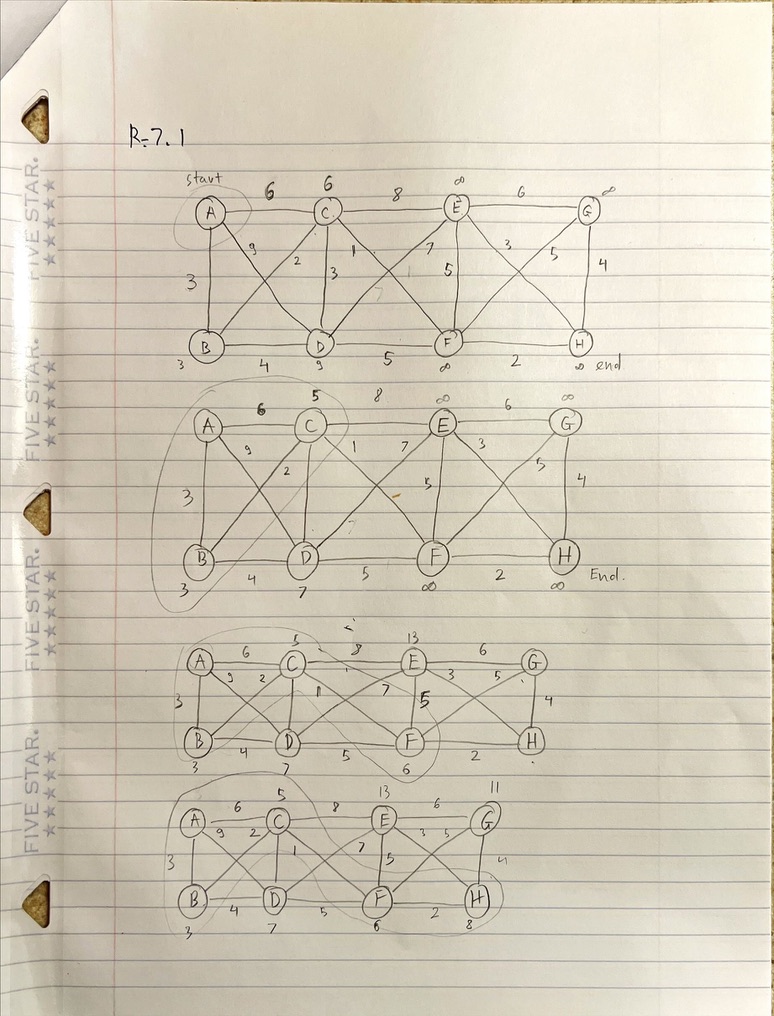 R-7.1
start
6 6 8 ∞ 6 ∞
A C E G
3 9 2 3 1 7 5 3 5 4
B D F H
3 4 9 5 ∞ 2 ∞ end
6 5 8 ∞ 6 ∞
A C E G
3 9 2 1 7 5 3 5 4
B D F H
3 4 7 5 ∞ 2 ∞ End.
6 5 8 13 6
A C E G
3 9 2 1 7 5 3 5 4
B D F H
3 4 7 5 6 2
6 5 8 13 6 11
A C E G
3 9 2 1 7 5 3 5 4
B D F H
3 4 7 5 6 2 8
FIVE STAR.
FIVE STAR.
FIVE STAR.
FIVE STAR.